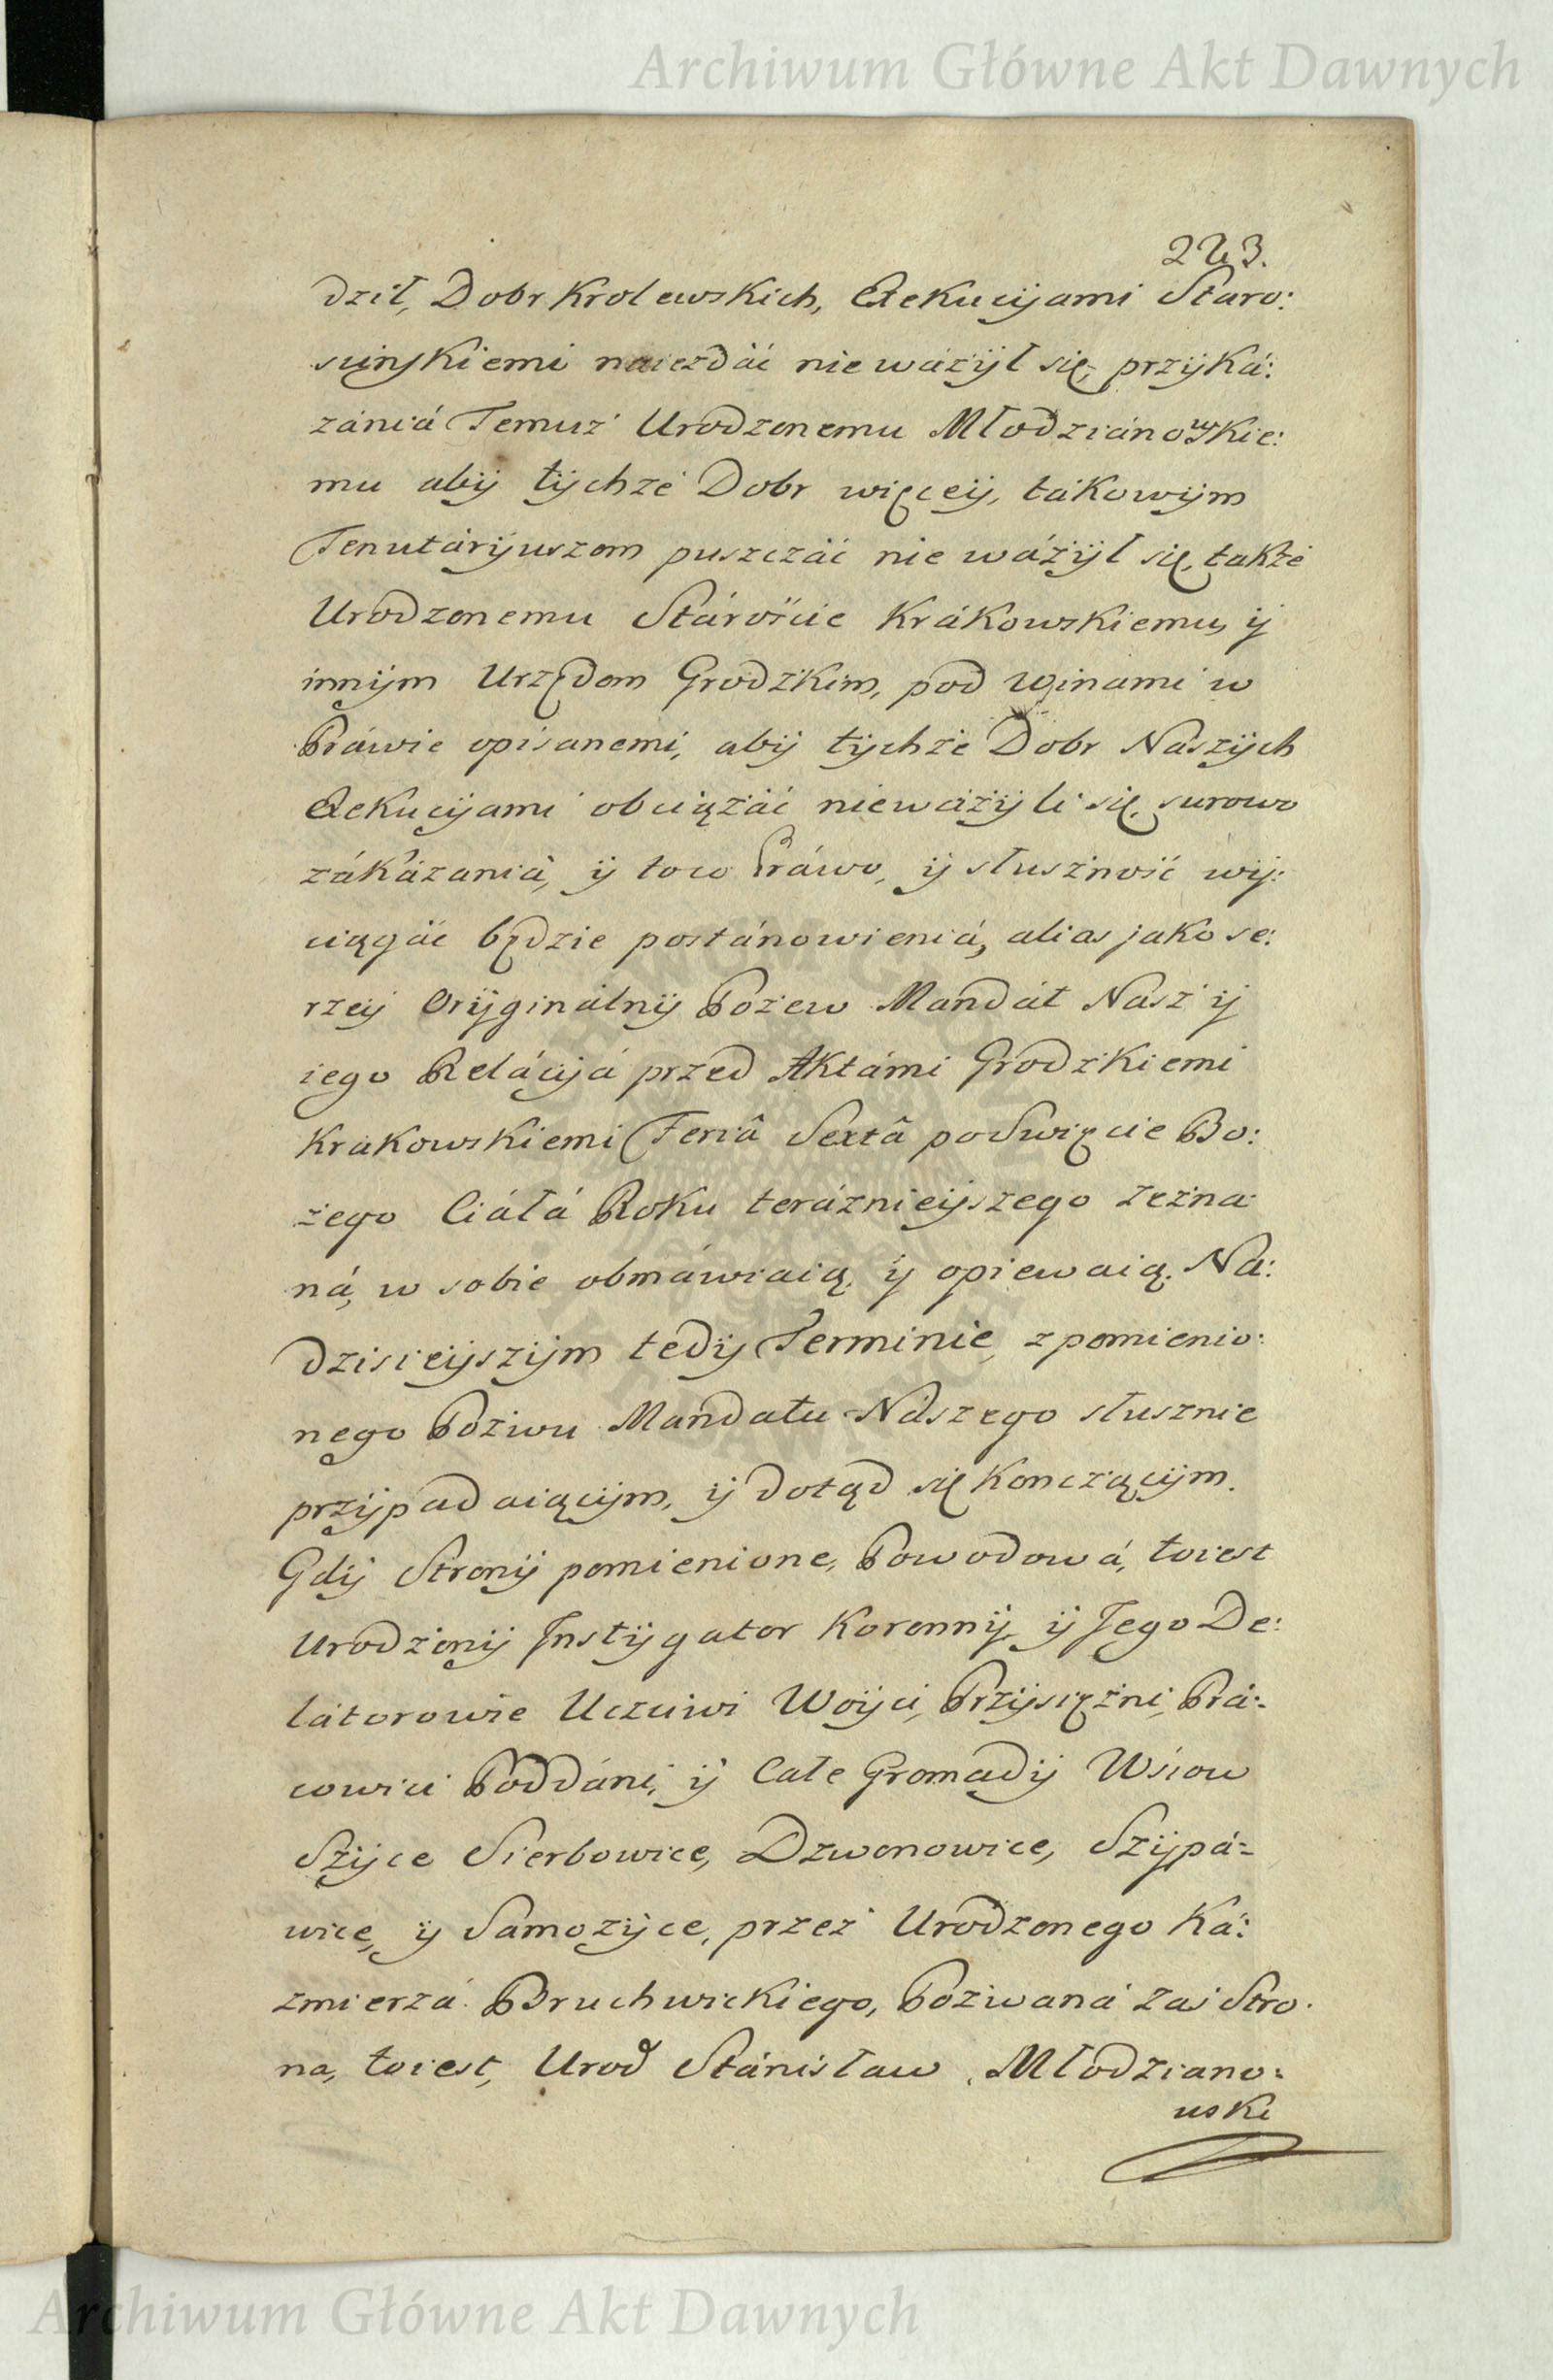 Archiwum Główne Akt Dawnych
223.
dził, Dobr Krolewskich, Exekucyjami Staro:
scinskiemi naiezdáć nie wáżył się, przyká:
zániá Temuż Urodzonemu Młodziánowskie:
mu aby tychże Dobr więcey, tákowym
Tenutáryuszom puszczáć nie wáżył się, także
Urodzonemu Stárościie Krákowskiemu, y
innym Urzędom Grodzkim, pod winami w
Práwie opisanemi, aby tychże Dobr Naszych
Exekucyjami obciążáć nieważyli się, surowo
zákázaniá, y toco Práwo, y słuszność wy:
ciągáć będzie postánowieniá, alias jako sze:
rzey Oryginálny Pozew Mandát Nasz y
iego Relácyjá przed Aktámi Grodzkiemi
Krakowskiemi Feriâ Sextâ po Swięcie Bo:
żego Ciáłá Roku teráznieyszego zezna
ná, w sobie obmáwiaią, y opiewaią. Na:
dzisieyszym tedy Terminie, z pomienio:
nego Pozwu Mandatu Nászego słusznie
przypadaiącym, y dotąd się Konczącym.
Gdy Strony pomienione, Powodowá, toiest
Urodzony Instygator Koronny, y Jego De:
látorowie Uczciwi Woyci, Przysięzni, Prá:
cowici Poddáni, y Całe Gromady Wsiow
Szyce Sierbowice, Dzwonowice, Szypá=
wice, y Samozyce, przez Urodzonego Ká:
zmierzá Bruchwickiego, Pozwaná zaś Stro
na, toiest, Urod Stánisław Młodziano:
wski
Archiwum Główne Akt Dawnych